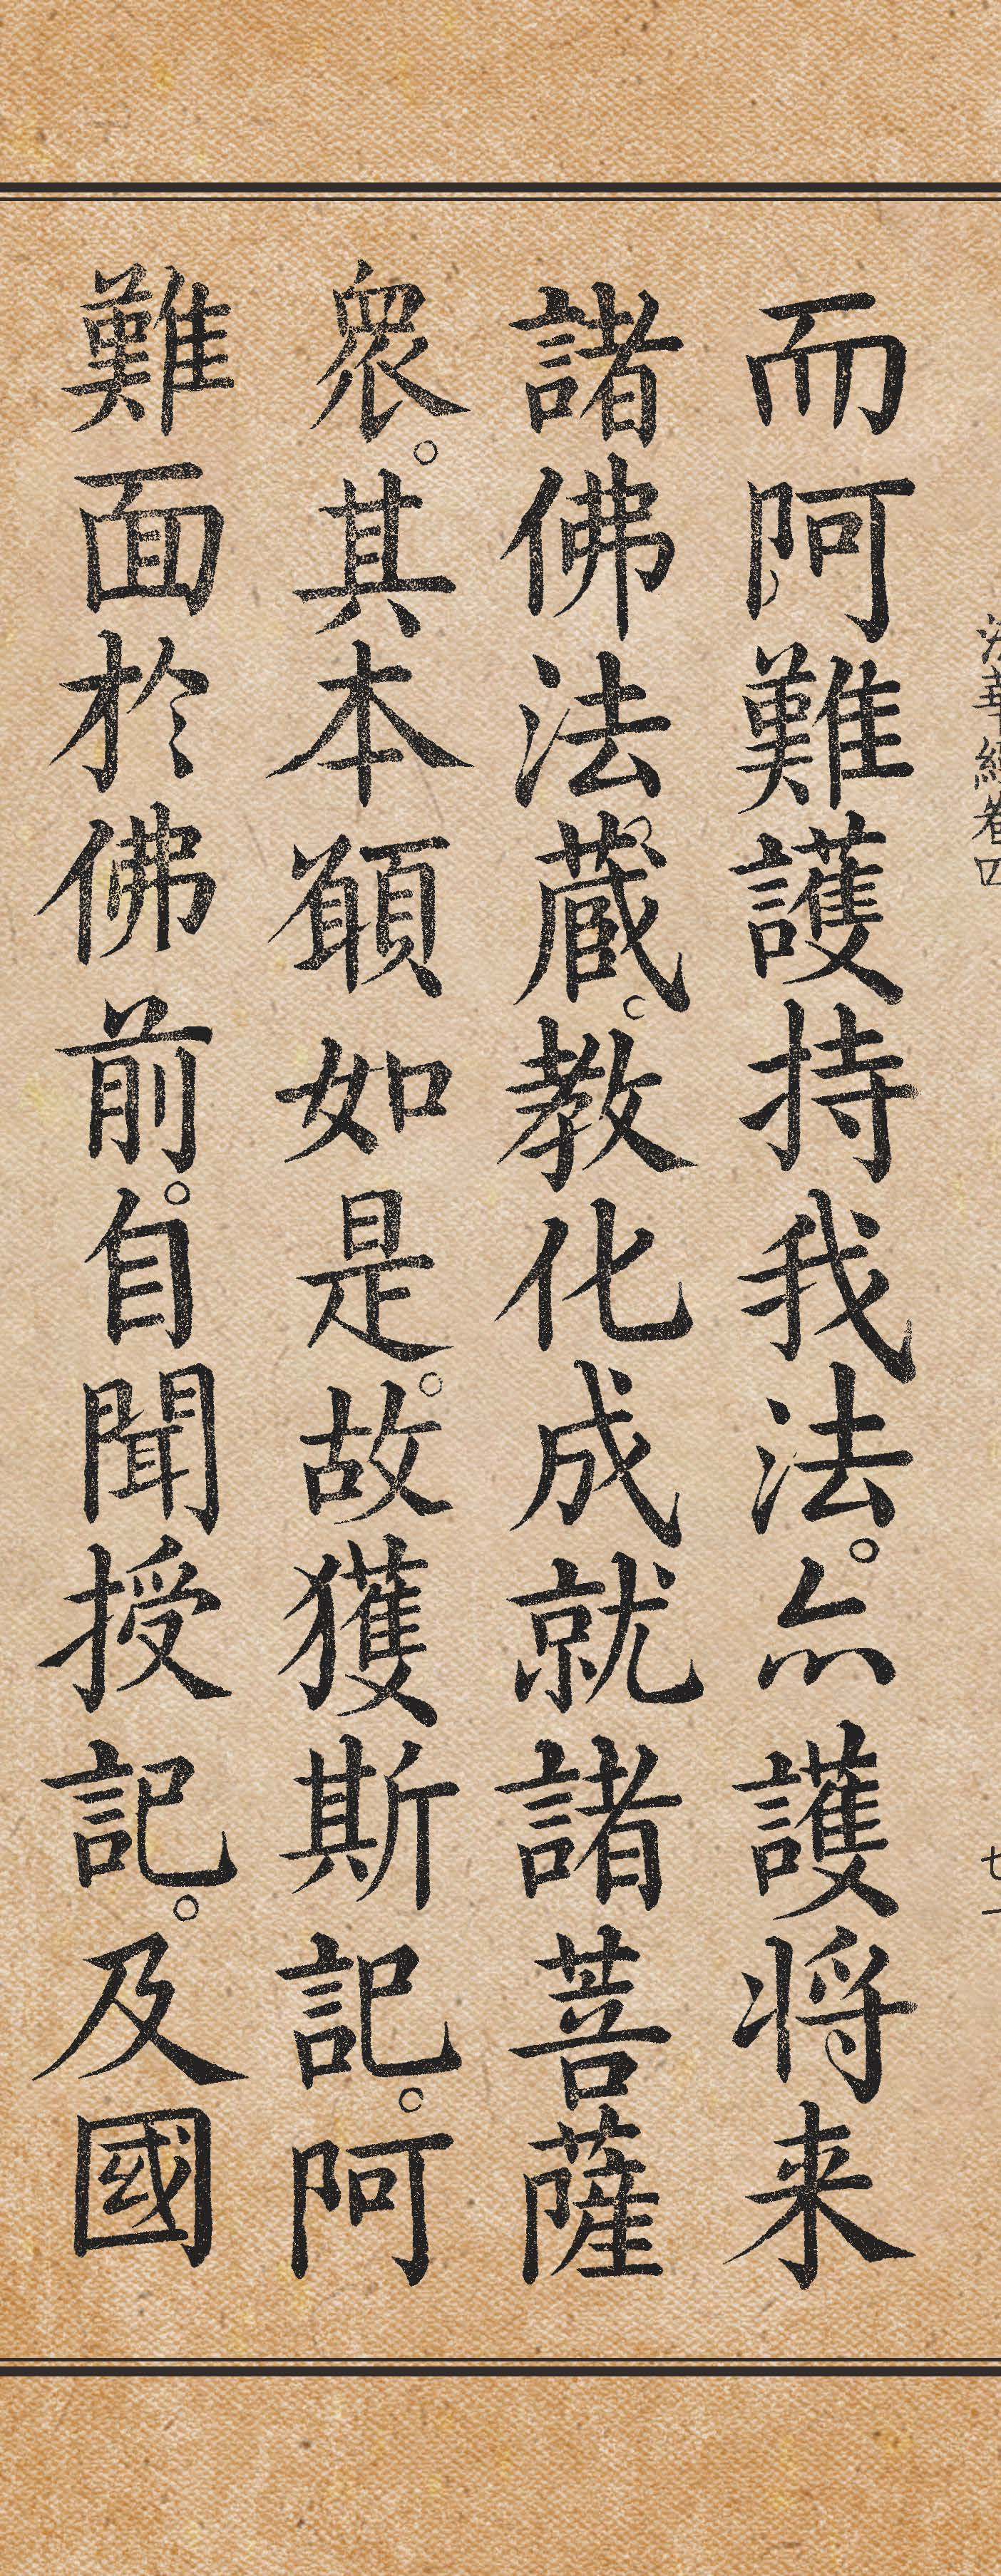 法華經卷四
而阿難護持我法。亦護将来
諸佛法藏。教化成就諸菩薩
眾。其本願如是。故獲斯記。阿
難面於佛前。自聞授記。及國